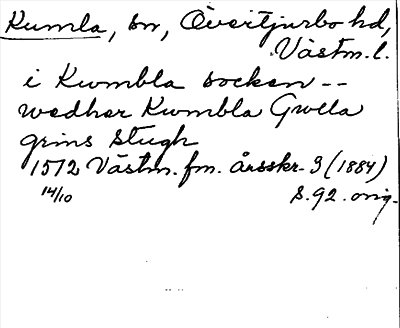 Kumla, sn, Övertjurbo hd,
Västm. l.
i Kwmbla socken --
wedher Kwmbla Gwlla
grins stugh
1572 Västm. fm. årsskr. 3 (1884)
14/10 s. 92. orig.